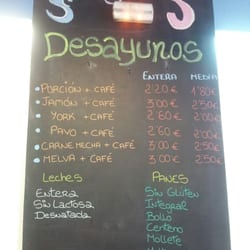 Desayunos
ENTERA MEDIA
PORCIÓN + CAFÉ 2'20 € 1'80 €
JAMÓN + CAFÉ 3'00 € 2'50 €
YORK + CAFÉ 2'60 € 2'00 €
PAVO + CAFÉ 2'60 € 2'00 €
CARNE MECHA + CAFÉ 3'00 € 2'50 €
MELVA + CAFÉ 3'00 € 2'50 €
Leches PANES
Entera Sin Glúten
Sin Lactosa Integral
Desnatada Bollo
Centeno
Mollete